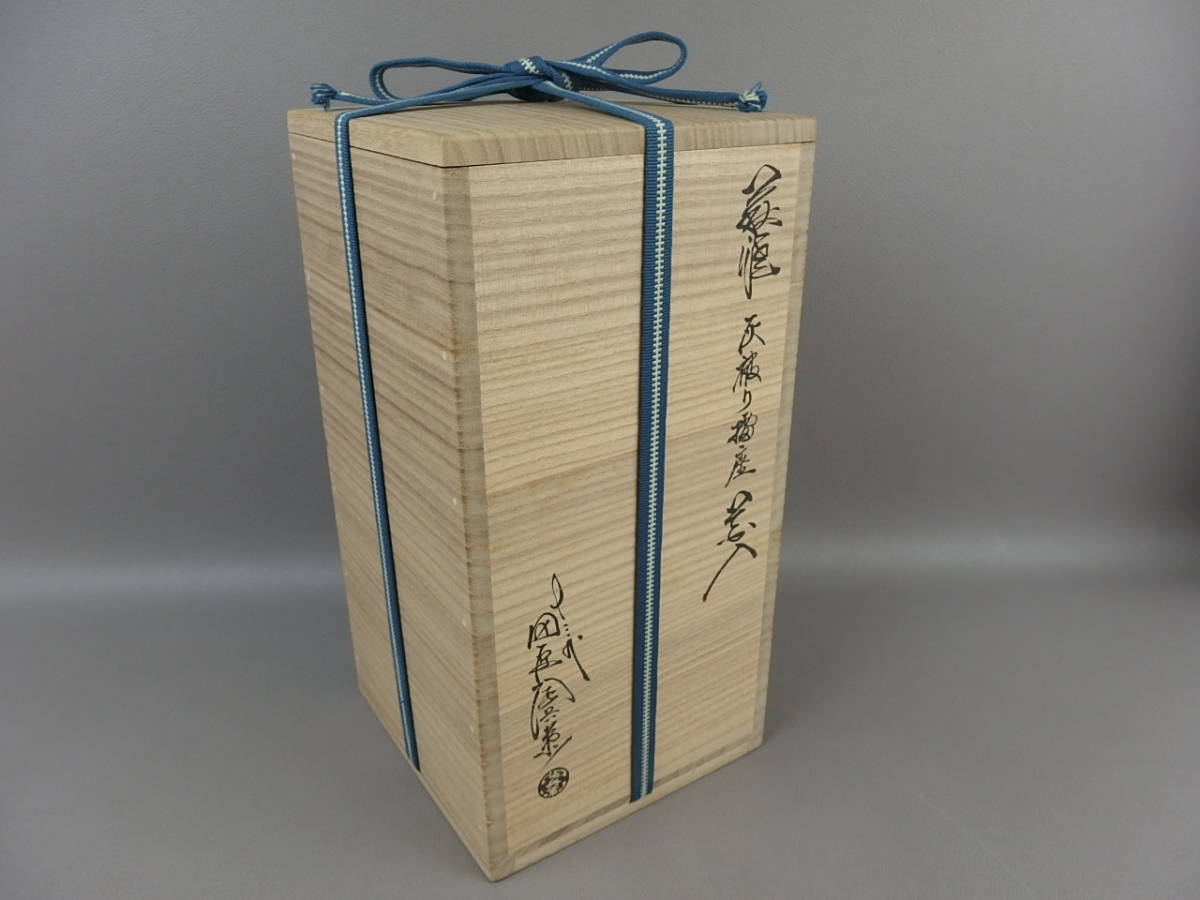 萩焼 灰被り擂座 花入
十三代 田原陶兵衛